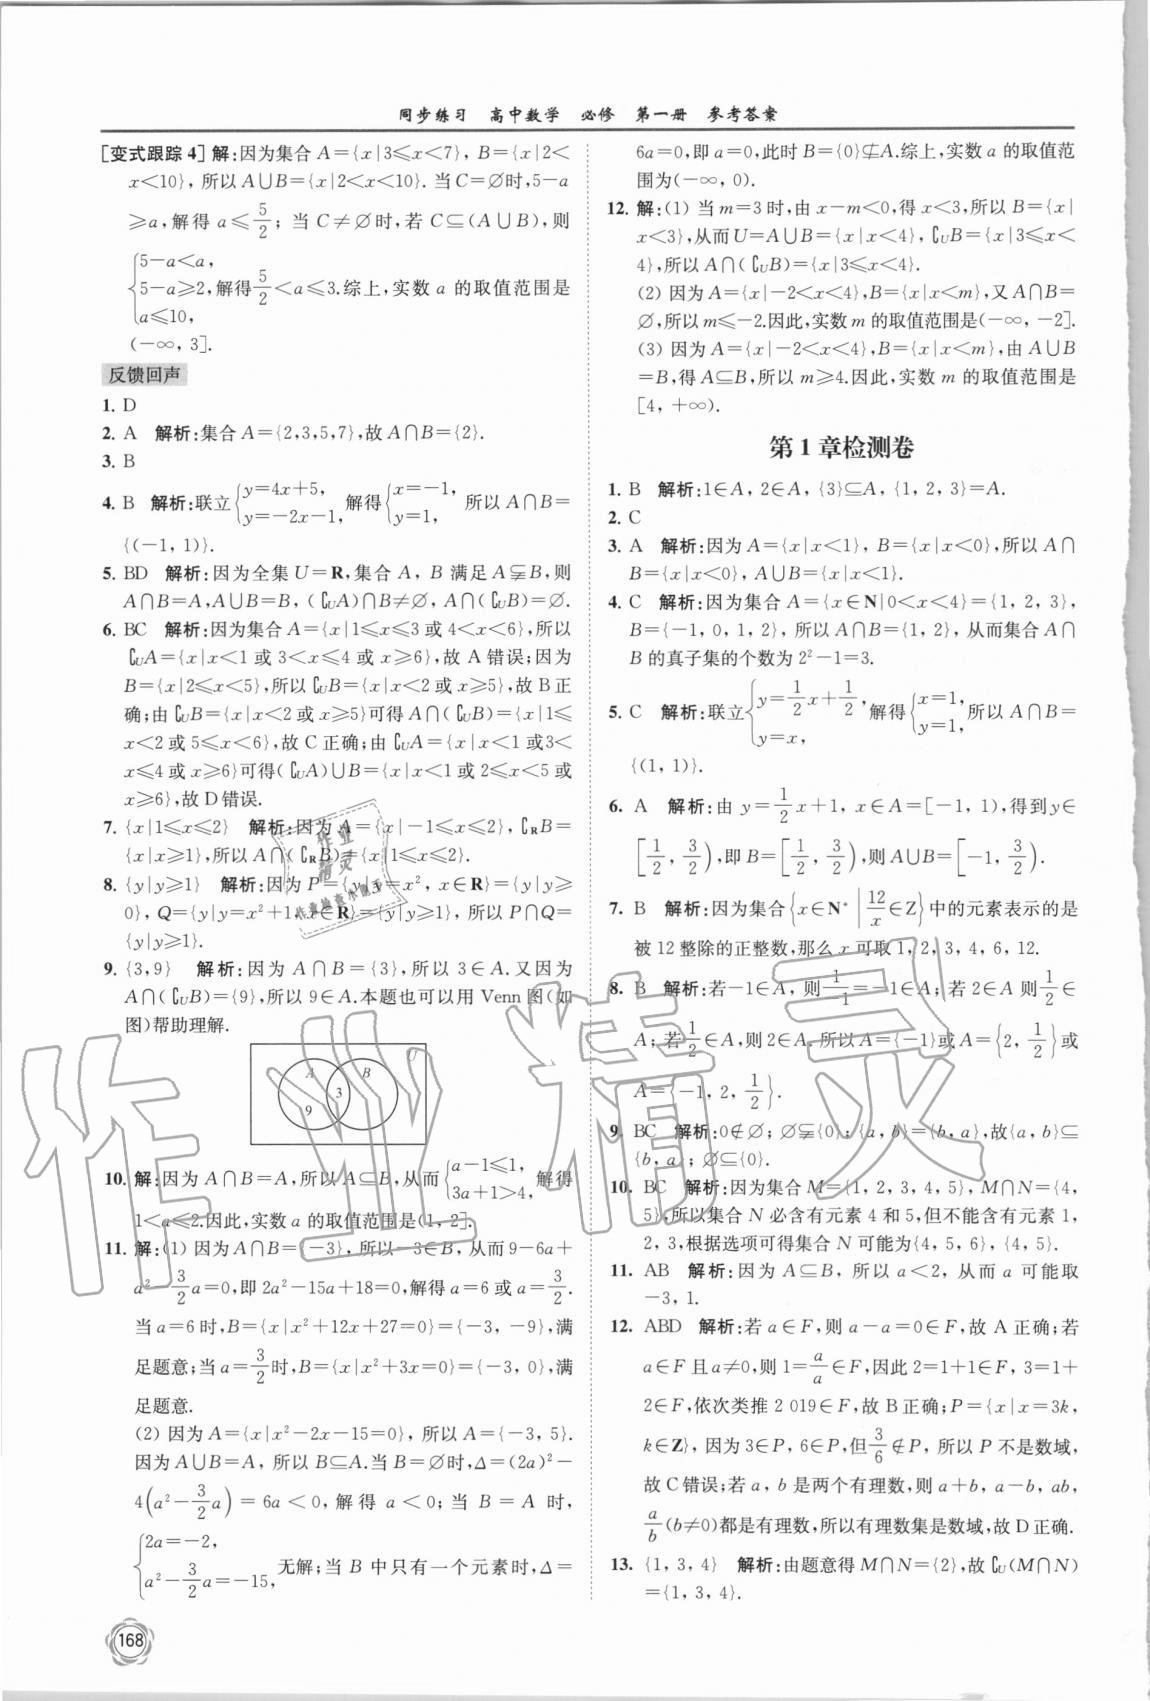 同步练习 高中数学 必修 第一册 参考答案
[变式跟踪4]解:因为集合A={x|3⩽x<7}, B={x|2<
x<10}, 所以A∪B={x|2<x<10}. 当C=∅时,5-a
⩾a,解得a⩽5/2; 当C≠∅时,若C⊆(A∪B),则
{5-a<a,
5-a⩾2,解得5/2<a⩽3.综上,实数a的取值范围是
a⩽10,
(-∞, 3].
反馈回声
1. D
2. A 解析:集合A={2,3,5,7},故A∩B={2}.
3. B
4. B 解析:联立{y=4x+5, y=-2x-1,解得{x=-1, y=1, 所以A∩B=
{(-1, 1)}.
5. BD 解析:因为全集U=R,集合A, B满足A⫋B,则
A∩B=A,A∪B=B, (∁UA)∩B≠∅, A∩(∁UB)=∅.
6. BC 解析:因为集合A={x|1⩽x⩽3或4<x<6},所以
∁UA={x|x<1或3<x⩽4或x⩾6},故A错误;因为
B={x|2⩽x<5},所以∁UB={x|x<2或x⩾5},故B正
确;由∁UB={x|x<2或x⩾5}可得A∩(∁UB)={x|1⩽
x<2或5⩽x<6},故C正确;由∁UA={x|x<1或3<
x⩽4或x⩾6}可得(∁UA)∪B={x|x<1或2⩽x<5或
x⩾6},故D错误.
7. {x|1⩽x⩽2} 解析:因为A={x|-1⩽x⩽2},∁RB=
{x|x⩾1},所以A∩(∁RB)={x|1⩽x⩽2}.
8. {y|y⩾1} 解析:因为P={y|y=x², x∈R}={y|y⩾
0}, Q={y|y=x²+1,x∈R}={y|y⩾1}, 所以P∩Q=
{y|y⩾1}.
9. {3,9} 解析:因为A∩B={3},所以3∈A.又因为
A∩(∁UB)={9},所以9∈A.本题也可以用Venn图(如
图)帮助理解.
U
A B
3
9
10. 解:因为A∩B=A,所以A⊆B,从而{a-1⩽1, 3a+1>4, 解得
1<a⩽2.因此,实数a的取值范围是(1, 2].
11. 解:(1) 因为A∩B={-3},所以-3∈B,从而9-6a+
a²-3/2a=0,即2a²-15a+18=0,解得a=6或a=3/2.
当a=6时,B={x|x²+12x+27=0}={-3, -9},满
足题意;当a=3/2时,B={x|x²+3x=0}={-3, 0},满
足题意.
(2) 因为A={x|x²-2x-15=0}, 所以A={-3, 5}.
因为A∪B=A, 所以B⊆A.当B=∅时,Δ=(2a)²-
4(a²-3/2a)=6a<0,解得a<0;当B=A时,
{2a=-2,
a²-3/2a=-15, 无解;当B中只有一个元素时,Δ=
6a=0,即a=0,此时B={0}⊈A.综上,实数a的取值范
围为(-∞, 0).
12. 解:(1) 当m=3时,由x-m<0,得x<3,所以B={x|
x<3},从而U=A∪B={x|x<4}, ∁UB={x|3⩽x<
4},所以A∩(∁UB)={x|3⩽x<4}.
(2) 因为A={x|-2<x<4},B={x|x<m},又A∩B=
∅,所以m⩽-2.因此,实数m的取值范围是(-∞, -2].
(3) 因为A={x|-2<x<4},B={x|x<m},由A∪B
=B,得A⊆B,所以m⩾4.因此,实数m的取值范围是
[4, +∞).
第1章检测卷
1. B 解析:1∈A, 2∈A, {3}⊆A, {1, 2, 3}=A.
2. C
3. A 解析:因为A={x|x<1}, B={x|x<0},所以A∩
B={x|x<0}, A∪B={x|x<1}.
4. C 解析:因为集合A={x∈N|0<x<4}={1, 2, 3},
B={-1, 0, 1, 2}, 所以A∩B={1, 2}, 从而集合A∩
B的真子集的个数为2²-1=3.
5. C 解析:联立{y=1/2x+1/2, y=x, 解得{x=1, y=1, 所以A∩B=
{(1, 1)}.
6. A 解析:由y=1/2x+1, x∈A=[-1, 1),得到y∈
[1/2, 3/2),即B=[1/2, 3/2),则A∪B=[-1, 3/2).
7. B 解析:因为集合{x∈N*|12/x∈Z}中的元素表示的是
被12整除的正整数,那么x可取1, 2, 3, 4, 6, 12.
8. B 解析:若-1∈A, 则1/-1=-1∈A; 若2∈A则1/2∈
A; 若1/2∈A,则2∈A. 所以A={-1}或A={2, 1/2}或
A={-1, 2, 1/2}.
9. BC 解析:0∉∅; ∅⫋{0}; {a, b}={b, a},故{a, b}⊆
{b, a}; ∅⊆{0}.
10. BC 解析:因为集合M={1, 2, 3, 4, 5}, M∩N={4,
5},所以集合N必含有元素4和5,但不能含有元素1,
2, 3,根据选项可得集合N可能为{4, 5, 6}, {4, 5}.
11. AB 解析:因为A⊆B, 所以a<2, 从而a可能取
-3, 1.
12. ABD 解析:若a∈F, 则a-a=0∈F, 故A正确;若
a∈F且a≠0,则1=a/a∈F,因此2=1+1∈F, 3=1+
2∈F,依次类推2 019∈F, 故B正确;P={x|x=3k,
k∈Z}, 因为3∈P, 6∈P,但3/6∉P, 所以P不是数域,
故C错误;若a, b是两个有理数,则a+b, a-b, ab,
a/b(b≠0)都是有理数,所以有理数集是数域,故D正确.
13. {1, 3, 4} 解析:由题意得M∩N={2},故∁U(M∩N)
={1, 3, 4}.
168
作业精灵